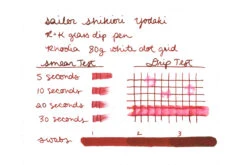 sailor shikiori yodaki
R+K glass dip pen
Rhodia 80g white dot grid
smear Test Drip Test
5 seconds
10 seconds
20 seconds
30 seconds
swabs 1 2 3